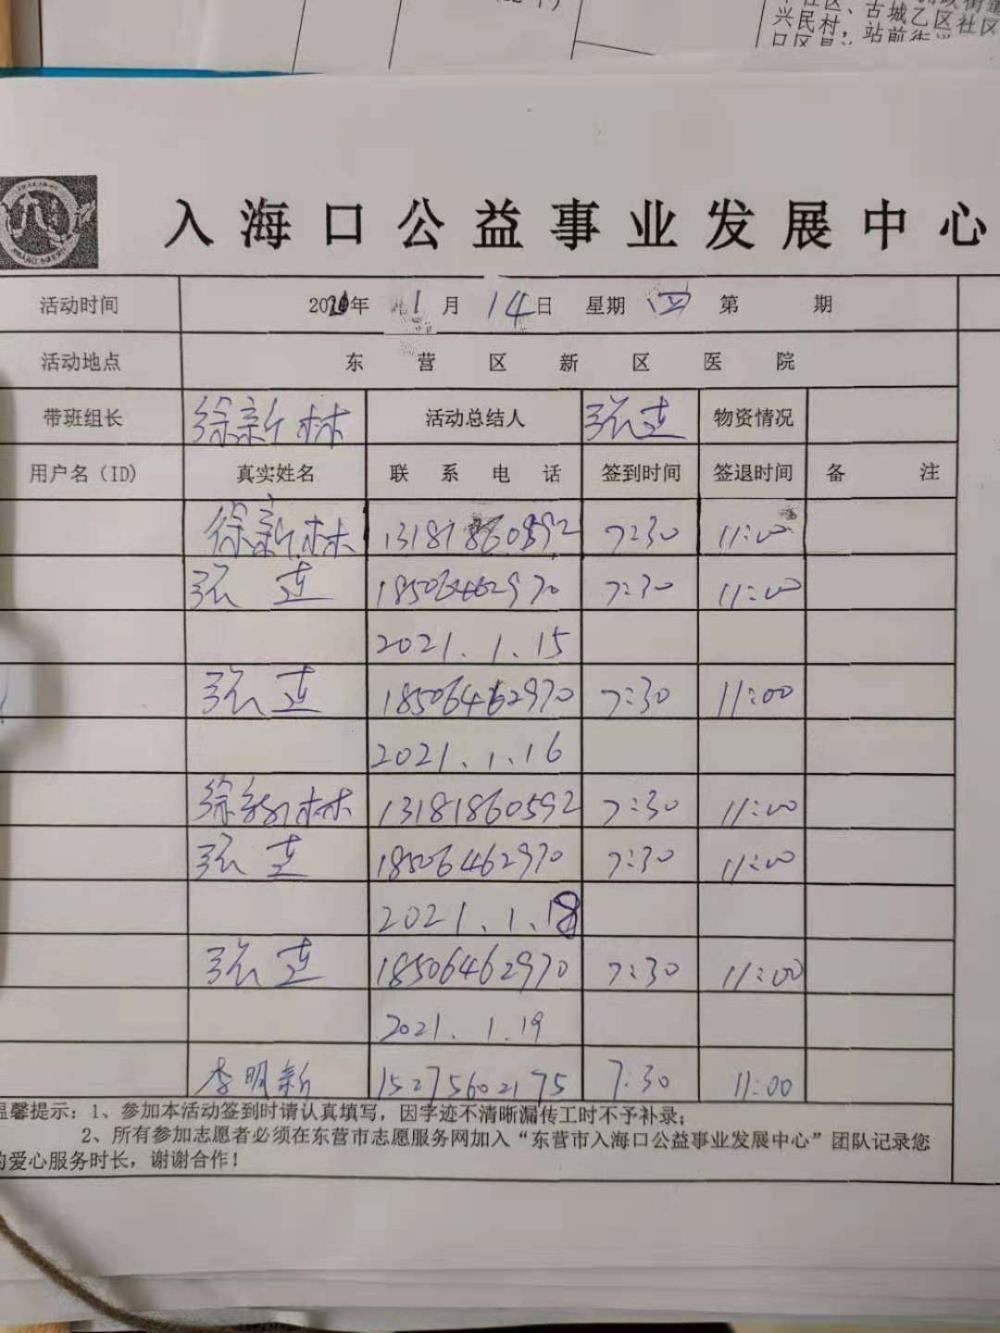 兴民村，站前街
古城乙区社区
入海口公益事业发展中心
活动时间 20 年 1月 14日 星期四 第 期
活动地点 东营区新区医院
带班组长 徐新林 活动总结人 张连 物资情况
用户名（ID） 真实姓名 联系电话 签到时间 签退时间 备注
徐新林 13181860592 7:30 11:00
张连 18506462970 7:30 11:00
2021.1.15
张连 18506462970 7:30 11:00
2021.1.16
徐新林 13181860592 7:30 11:00
张连 18506462970 7:30 11:00
2021.1.18
张连 18506462970 7:30 11:00
2021.1.19
李明新 15275602175 7:30 11:00
温馨提示：1、参加本活动签到时请认真填写，因字迹不清晰漏传工时不予补录；
2、所有参加志愿者必须在东营市志愿服务网加入“东营市入海口公益事业发展中心”团队记录您
的爱心服务时长，谢谢合作！